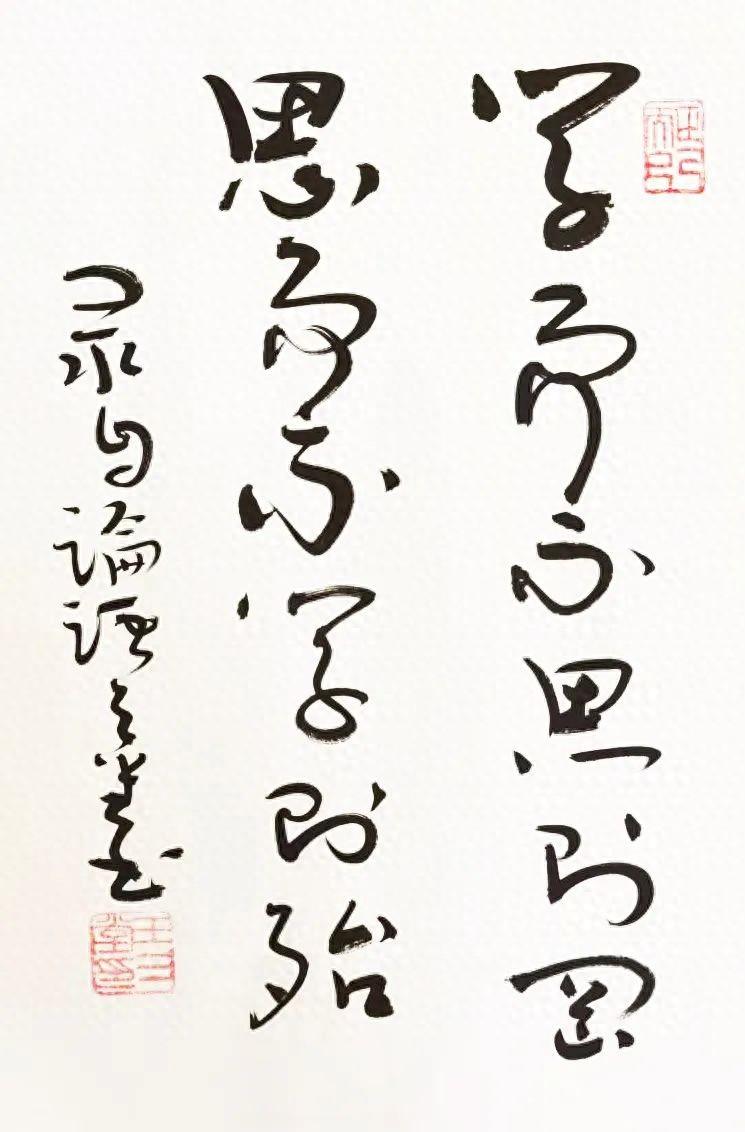 学而不思则罔
思而不学则殆
录自論語堂书